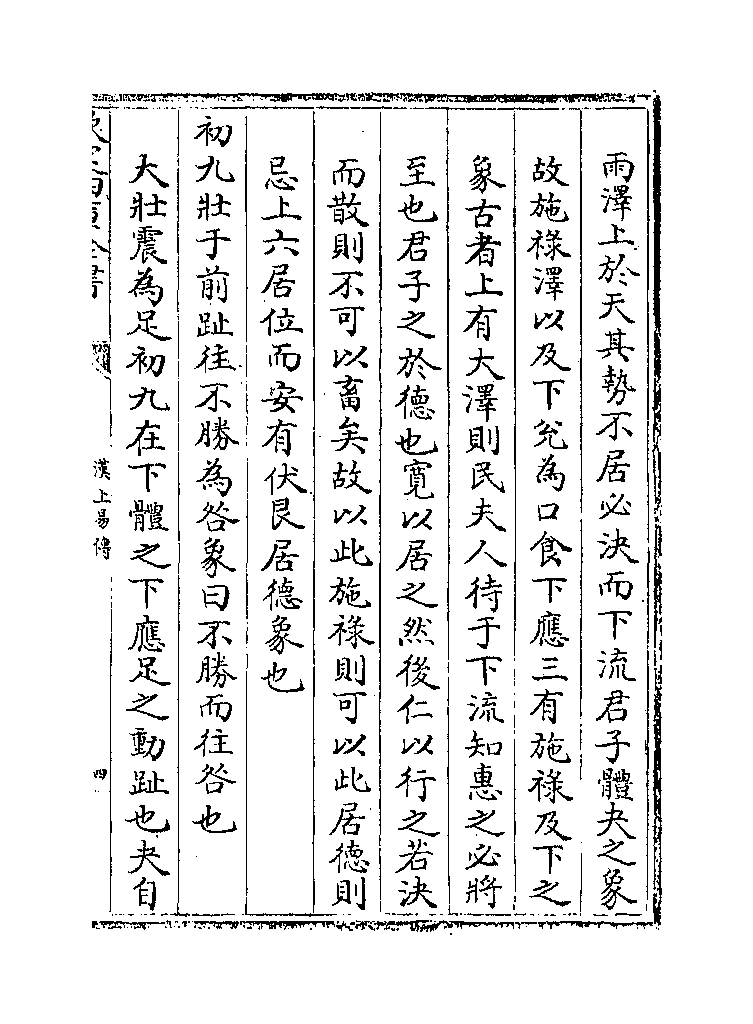 雨澤上於天其勢不居必決而下流君子體夬之象
故施祿澤以及下兊為口食下應三有施祿及下之
象古者上有大澤則民夫人待于下流知惠之必將
至也君子之於德也寛以居之然後仁以行之若決
而散則不可以畜矣故以此施祿則可以此居德則
忌上六居位而安有伏艮居德象也
初九壯于前趾往不勝為咎象曰不勝而往咎也
大壯震為足初九在下體之下應足之動趾也夬自
漢上易傳
四